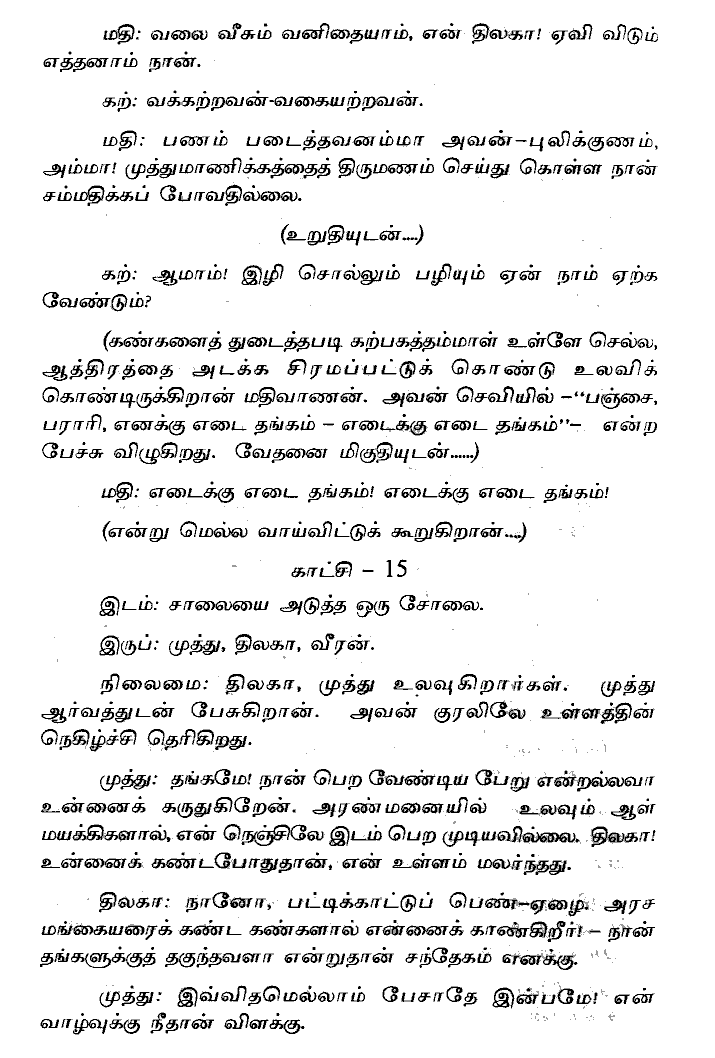 மதி: வலை வீசும் வனிதையாம், என் திலகா! ஏவி விடும்
எத்தனாம் நான்.
கற்: வக்கற்றவன்-வகையற்றவன்.
மதி: பணம் படைத்தவனம்மா அவன்-புலிக்குணம்,
அம்மா! முத்துமாணிக்கத்தைத் திருமணம் செய்து கொள்ள நான்
சம்மதிக்கப் போவதில்லை.
(உறுதியுடன்....)
கற்: ஆமாம்! இழி சொல்லும் பழியும் ஏன் நாம் ஏற்க
வேண்டும்?
(கண்களைத் துடைத்தபடி கற்பகத்தம்மாள் உள்ளே செல்ல,
ஆத்திரத்தை அடக்க சிரமப்பட்டுக் கொண்டு உலவிக்
கொண்டிருக்கிறான் மதிவாணன். அவன் செவியில் -“பஞ்சை,
பராரி, எனக்கு எடை தங்கம் - எடைக்கு எடை தங்கம்”- என்ற
பேச்சு விழுகிறது. வேதனை மிகுதியுடன்......)
மதி: எடைக்கு எடை தங்கம்! எடைக்கு எடை தங்கம்!
(என்று மெல்ல வாய்விட்டுக் கூறுகிறான்....)
காட்சி - 15
இடம்: சாலையை அடுத்த ஒரு சோலை.
இருப்: முத்து, திலகா, வீரன்.
நிலைமை: திலகா, முத்து உலவுகிறார்கள். முத்து
ஆர்வத்துடன் பேசுகிறான். அவன் குரலிலே உள்ளத்தின்
நெகிழ்ச்சி தெரிகிறது.
முத்து: தங்கமே! நான் பெற வேண்டிய பேறு என்றல்லவா
உன்னைக் கருதுகிறேன். அரண்மனையில் உலவும் ஆள்
மயக்கிகளால், என் நெஞ்சிலே இடம் பெற முடியவில்லை. திலகா!
உன்னைக் கண்டபோதுதான், என் உள்ளம் மலர்ந்தது.
திலகா: நானோ, பட்டிக்காட்டுப் பெண்-ஏழை. அரச
மங்கையரைக் கண்ட கண்களால் என்னைக் காண்கிறீர்! - நான்
தங்களுக்குத் தகுந்தவளா என்றுதான் சந்தேகம் எனக்கு.
முத்து: இவ்விதமெல்லாம் பேசாதே இன்பமே! என்
வாழ்வுக்கு நீதான் விளக்கு.